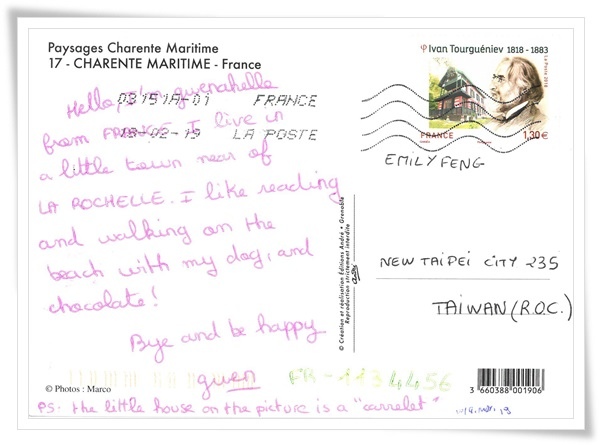 Paysages Charente Maritime
17 - CHARENTE MARITIME - France
Hello, I'm gwenahelle
from FRANCE I live in
a little town near of
LA ROCHELLE. I like reading
and walking on the
beach with my dog, and
chocolate!
Bye and be happy
gwen
PS: the little house on the picture is a "carrelet"
03151A-01 FRANCE
18-02-19 LA POSTE
Ivan Tourguéniev 1818 - 1883
La Poste 2018
FRANCE
1,30 €
EMILY FENG
NEW TAIPEI CITY 235
TAIWAN (R.O.C.)
© Création et réalisation Éditions André - Grenoble
Reproduction strictement interdite
© Photos : Marco
FR-1134456
3 660388 001906